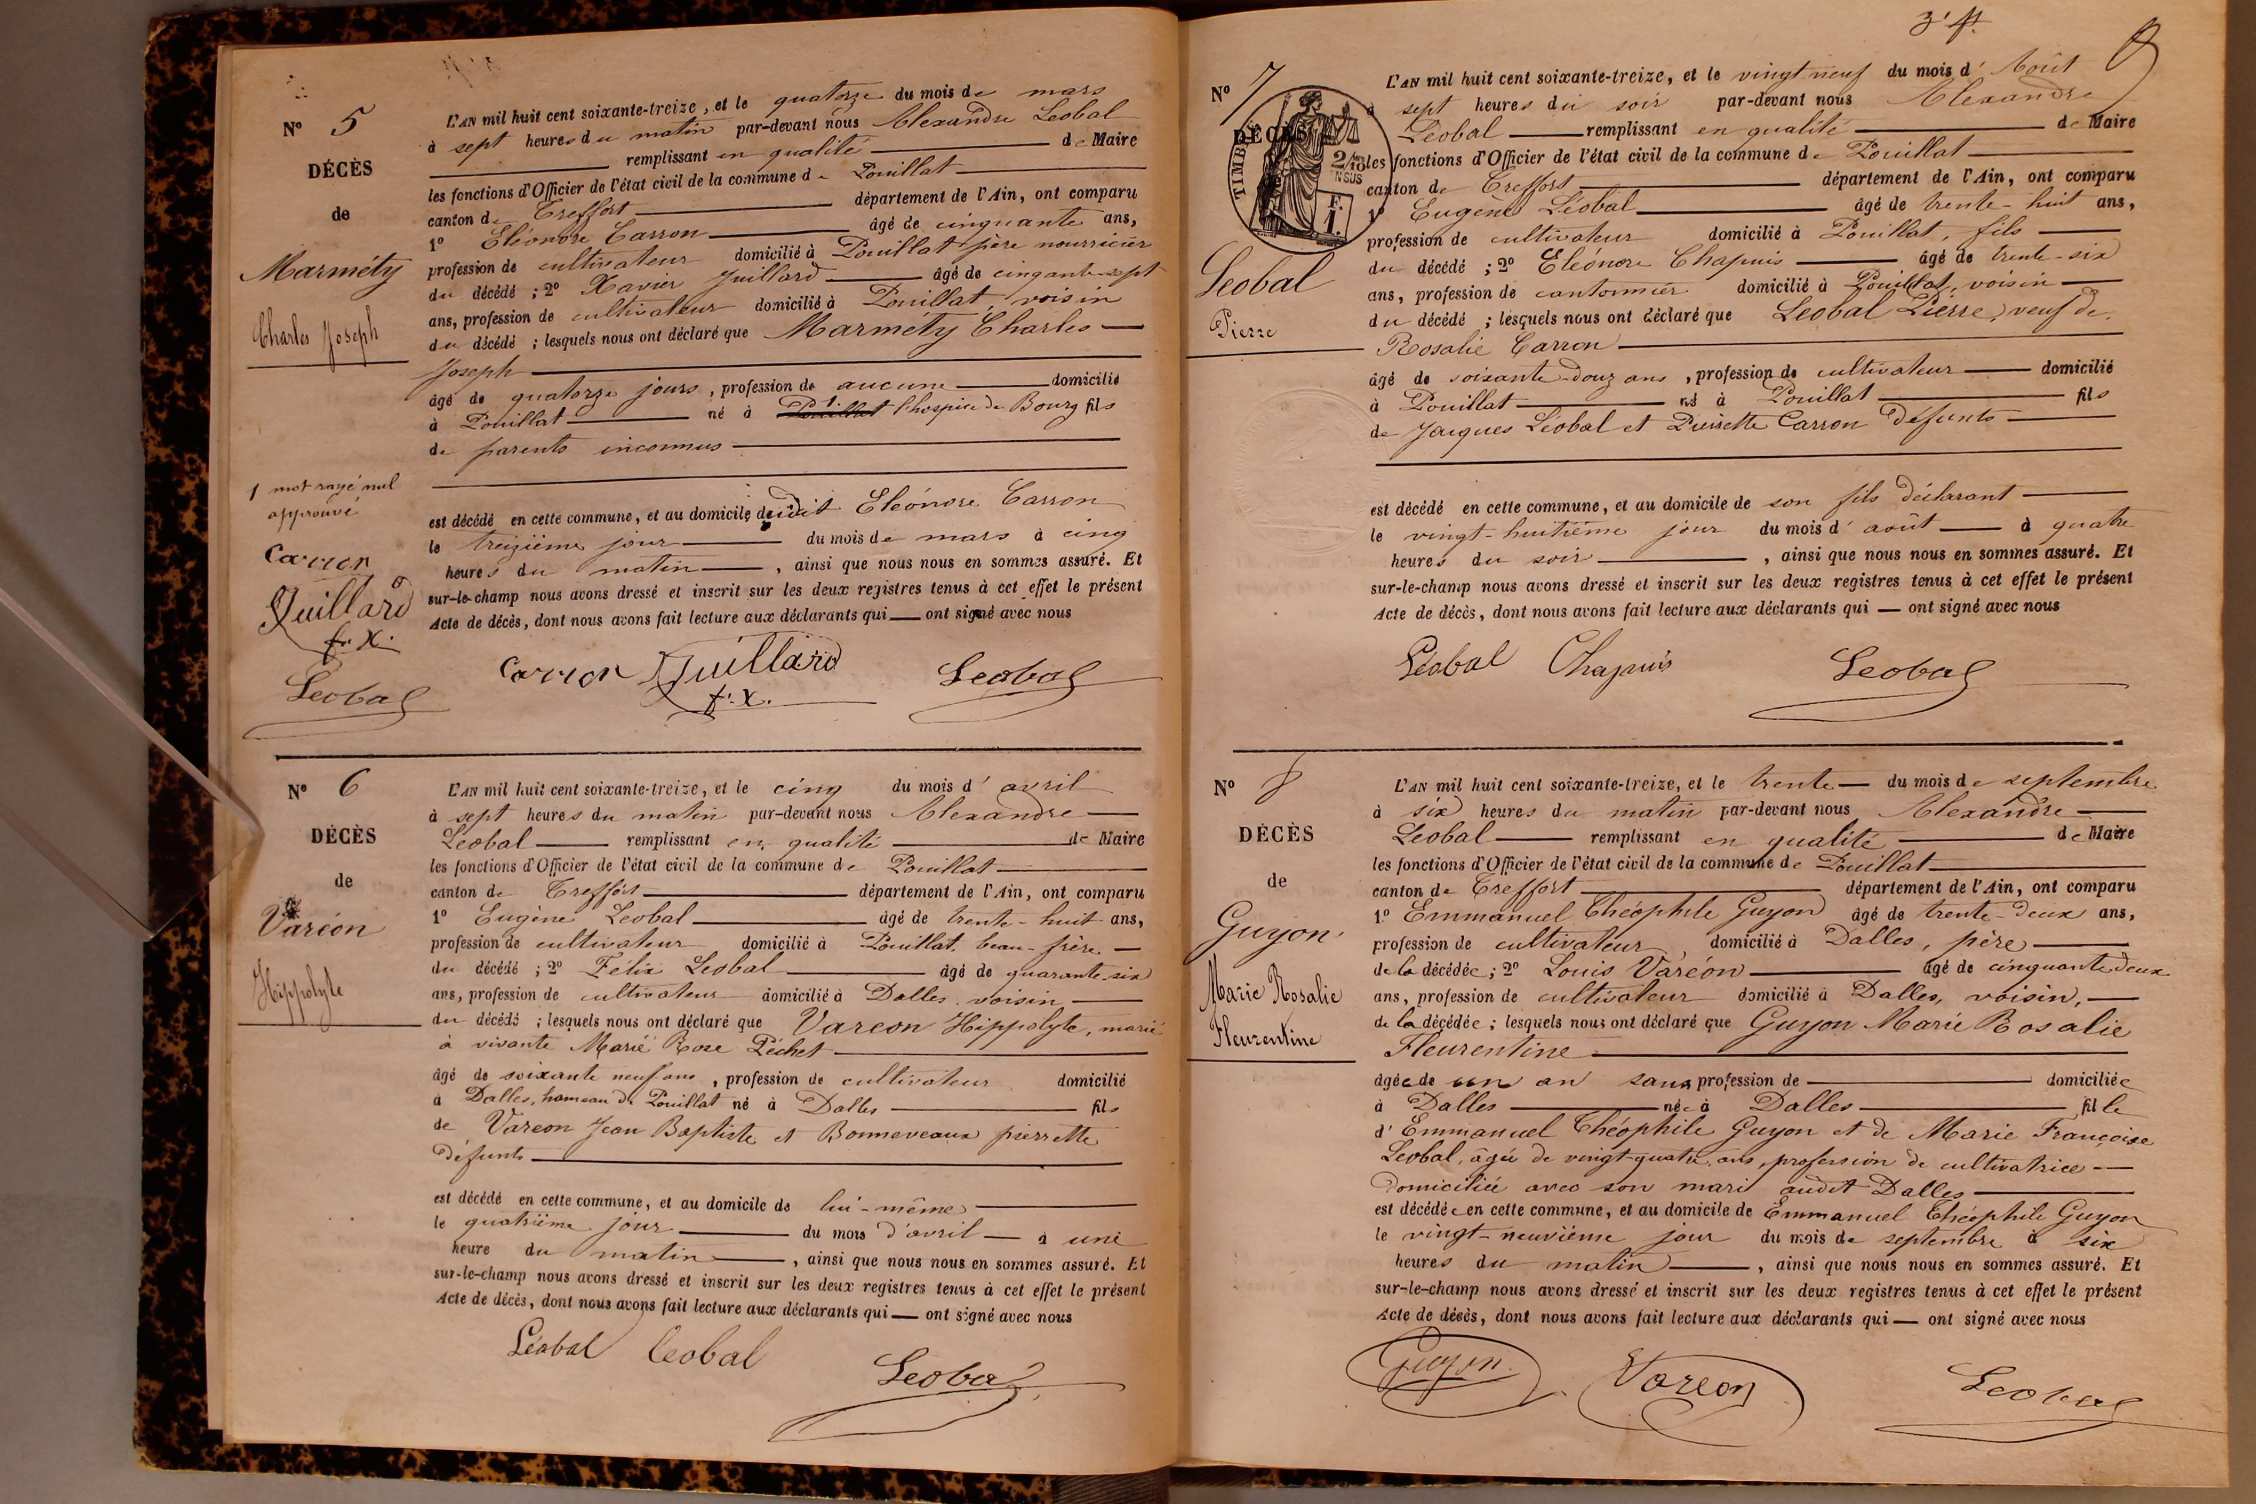 Nº 5
DÉCÈS
de
Marméty
Charles Joseph
1 mot rayé nul
approuvé
Carron
Juillard
f. X.
Leobal
L'AN mil huit cent soixante-treize, et le quatorze du mois de mars
à sept heures du matin par-devant nous Alexandre Leobal
remplissant en qualité de Maire
les fonctions d'Officier de l'état civil de la commune de Pouillat
canton de Treffort département de l'Ain, ont comparu
1º Eléonore Carron âgé de cinquante ans,
profession de cultivateur domicilié à Pouillat père nourricier
du décédé ; 2º Xavier Juillard âgé de cinqante-sept
ans, profession de cultivateur domicilié à Pouillat, voisin
du décédé ; lesquels nous ont déclaré que Marméty Charles
Joseph
âgé de quatorze jours, profession de aucune domicilié
à Pouillat né à Pouillat l'hospice de Bourg fils
de parents inconnus
est décédé en cette commune, et au domicile dudit Eléonore Carron
le treizième jour du mois de mars à cinq
heures du matin, ainsi que nous nous en sommes assuré. Et
sur-le-champ nous avons dressé et inscrit sur les deux registres tenus à cet effet le présent
Acte de décès, dont nous avons fait lecture aux déclarants qui — ont signé avec nous
Carron Juillard Leobal
f. X.
Nº 6
DÉCÈS
de
Varéon
Hippolyte
L'AN mil huit cent soixante-treize, et le cinq du mois d'avril
à sept heures du matin par-devant nous Alexandre
Léobal remplissant en qualité de Maire
les fonctions d'Officier de l'état civil de la commune de Pouillat
canton de Treffort département de l'Ain, ont comparu
1º Eugène Leobal âgé de trente-huit ans,
profession de cultivateur domicilié à Pouillat, beau-frère
du décédé ; 2º Félix Leobal âgé de quarante-six
ans, profession de cultivateur domicilié à Dalles voisin
du décédé ; lesquels nous ont déclaré que Vareon Hippolyte, marié
à vivante Marie Rose Péchet
âgé de soixante neuf ans, profession de cultivateur domicilié
à Dalles, hameau de Pouillat né à Dalles fils
de Vareon Jean Baptiste et Bonneveaux pierrette
défunts
est décédé en cette commune, et au domicile de lui-même
le quatrième jour du mois d'avril à une
heure du matin, ainsi que nous nous en sommes assuré. Et
sur-le-champ nous avons dressé et inscrit sur les deux registres tenus à cet effet le présent
Acte de décès, dont nous avons fait lecture aux déclarants qui — ont signé avec nous
Léobal leobal Leobal
Nº 7
DÉCÈS
TIMBRE
2/10 EN SUS
F. 1.
Leobal
Pierre
L'AN mil huit cent soixante-treize, et le vingt neuf du mois d'Août
à sept heures du soir par-devant nous Alexandre
Léobal remplissant en qualité de Maire
les fonctions d'Officier de l'état civil de la commune de Pouillat
canton de Treffort département de l'Ain, ont comparu
1º Eugène Léobal âgé de trente-huit ans,
profession de cultivateur domicilié à Pouillat, fils
du décédé ; 2º Eléonore Chapuis âgé de trente-six
ans, profession de cantonnier domicilié à Pouillat, voisin
du décédé ; lesquels nous ont déclaré que Leobal Pierre, veuf de
Rosalie Carron
âgé de soixante-douz ans, profession de cultivateur domicilié
à Pouillat né à Pouillat fils
de Jacques Léobal et Pierrette Carron défunts
est décédé en cette commune, et au domicile de son fils déclarant
le vingt-huitième jour du mois d'août à quatre
heures du soir, ainsi que nous nous en sommes assuré. Et
sur-le-champ nous avons dressé et inscrit sur les deux registres tenus à cet effet le présent
Acte de décès, dont nous avons fait lecture aux déclarants qui — ont signé avec nous
Léobal Chapuis Leobal
Nº 8
DÉCÈS
de
Guyon
Marie Rosalie
Fleurentine
L'AN mil huit cent soixante-treize, et le trente du mois de septembre
à six heures du matin par-devant nous Alexandre
Leobal remplissant en qualité de Maire
les fonctions d'Officier de l'état civil de la commune de Pouillat
canton de Treffort département de l'Ain, ont comparu
1º Emmanuel Théophile Guyon âgé de trente-deux ans,
profession de cultivateur, domicilié à Dalles, père
de la décédée ; 2º Louis Varéon âgé de cinquante deux
ans, profession de cultivateur domicilié à Dalles, voisin,
de la décédée ; lesquels nous ont déclaré que Guyon Marie Rosalie
Fleurentine
âgée de un an sans profession de domiciliée
à Dalles née à Dalles fille
d'Emmanuel Théophile Guyon et de Marie Françoise
Leobal, âgée de vingt-quatre ans, profession de cultivatrice
domiciliée avec son mari audit Dalles
est décédée en cette commune, et au domicile de Emmanuel Théophile Guyon
le vingt-neuvième jour du mois de septembre à six
heures du matin, ainsi que nous nous en sommes assuré. Et
sur-le-champ nous avons dressé et inscrit sur les deux registres tenus à cet effet le présent
Acte de décès, dont nous avons fait lecture aux déclarants qui — ont signé avec nous
Guyon Vareon Leobal